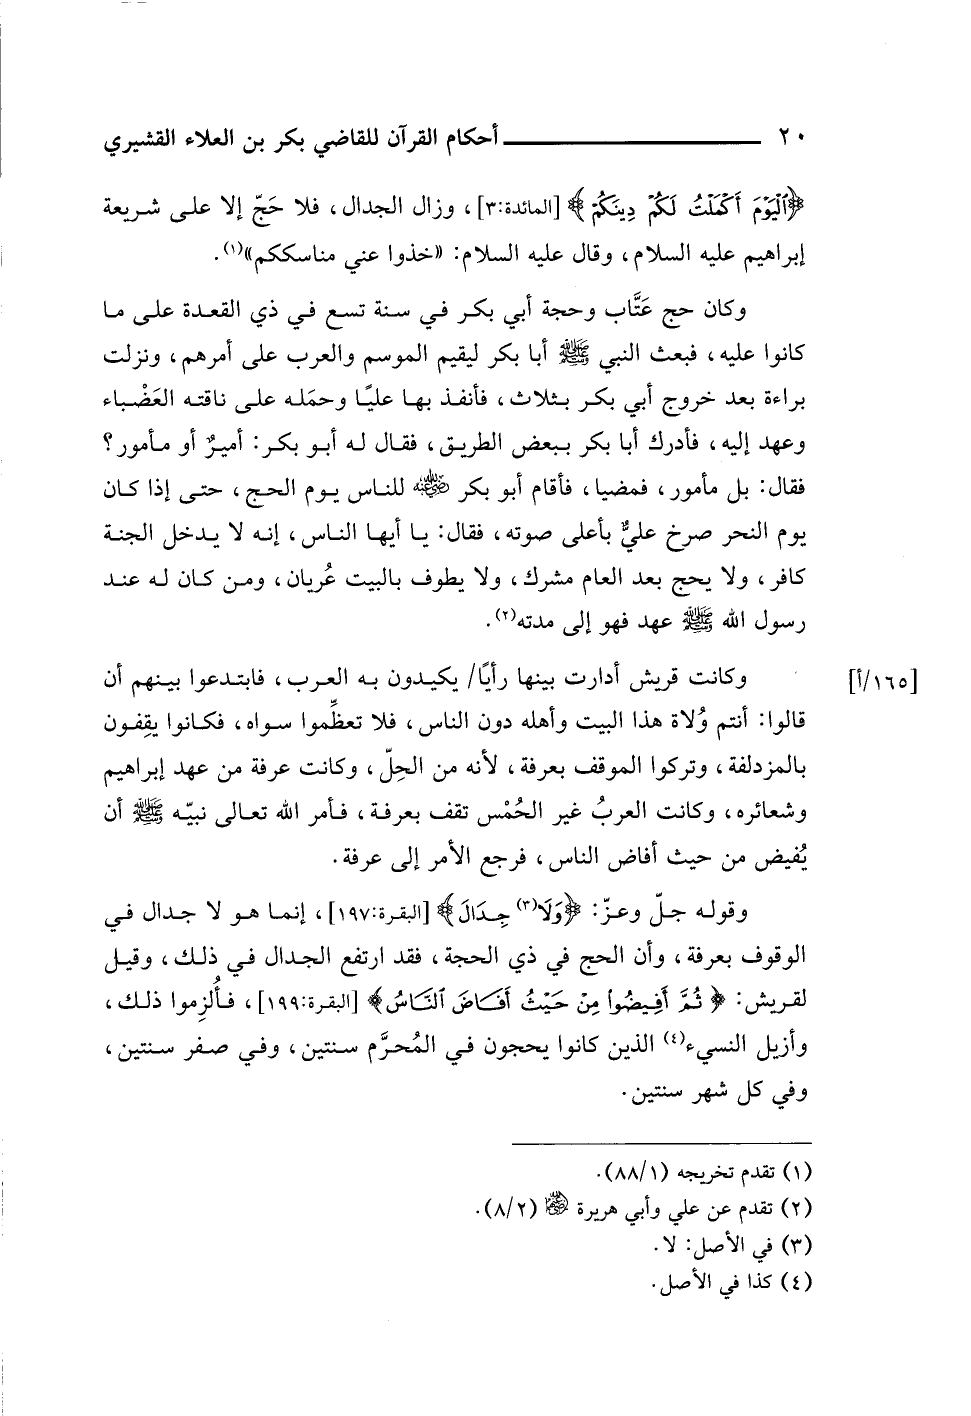 ٢٠ أحكام القرآن للقاضي بكر بن العلاء القشيري
﴿ٱلْيَوْمَ أَكْمَلْتُ لَكُمْ دِينَكُمْ﴾ [المائدة:٣]، وزال الجدال، فلا حَجّ إلا على شريعة
إبراهيم عليه السلام، وقال عليه السلام: «خذوا عني مناسككم»(١).
وكان حج عَتَّاب وحجة أبي بكر في سنة تسع في ذي القعدة على ما
كانوا عليه، فبعث النبي ﷺ أبا بكر ليقيم الموسم والعرب على أمرهم، ونزلت
براءة بعد خروج أبي بكر بثلاث، فأنفذ بها عليًا وحمَله على ناقته العَضْباء
وعهد إليه، فأدرك أبا بكر ببعض الطريق، فقال له أبو بكر: أميرٌ أو مأمور؟
فقال: بل مأمور، فمضيا، فأقام أبو بكر رضي الله عنه للناس يوم الحج، حتى إذا كان
يوم النحر صرخ عليٌّ بأعلى صوته، فقال: يا أيها الناس، إنه لا يدخل الجنة
كافر، ولا يحج بعد العام مشرك، ولا يطوف بالبيت عُريان، ومن كان له عند
رسول الله ﷺ عهد فهو إلى مدته(٢).
[١٦٥/أ] وكانت قريش أدارت بينها رأيًا/ يكيدون به العرب، فابتدعوا بينهم أن
قالوا: أنتم وُلاة هذا البيت وأهله دون الناس، فلا تعظِّموا سواه، فكانوا يقِفون
بالمزدلفة، وتركوا الموقف بعرفة، لأنه من الحِلّ، وكانت عرفة من عهد إبراهيم
وشعائره، وكانت العربُ غير الحُمْس تقف بعرفة، فأمر الله تعالى نبيّه ﷺ أن
يُفيض من حيث أفاض الناس، فرجع الأمر إلى عرفة.
وقوله جلّ وعزّ: ﴿وَلَا(٣) جِدَالَ﴾ [البقرة:١٩٧]، إنما هو لا جدال في
الوقوف بعرفة، وأن الحج في ذي الحجة، فقد ارتفع الجدال في ذلك، وقيل
لقريش: ﴿ثُمَّ أَفِيضُوا۟ مِنْ حَيْثُ أَفَاضَ ٱلنَّاسُ﴾ [البقرة:١٩٩]، فأُلزِموا ذلك،
وأزيل النسيء(٤) الذين كانوا يحجون في المُحرَّم سنتين، وفي صفر سنتين،
وفي كل شهر سنتين.
(١) تقدم تخريجه (٨٨/١).
(٢) تقدم عن علي وأبي هريرة رضي الله عنهما (٨/٢).
(٣) في الأصل: لا.
(٤) كذا في الأصل.